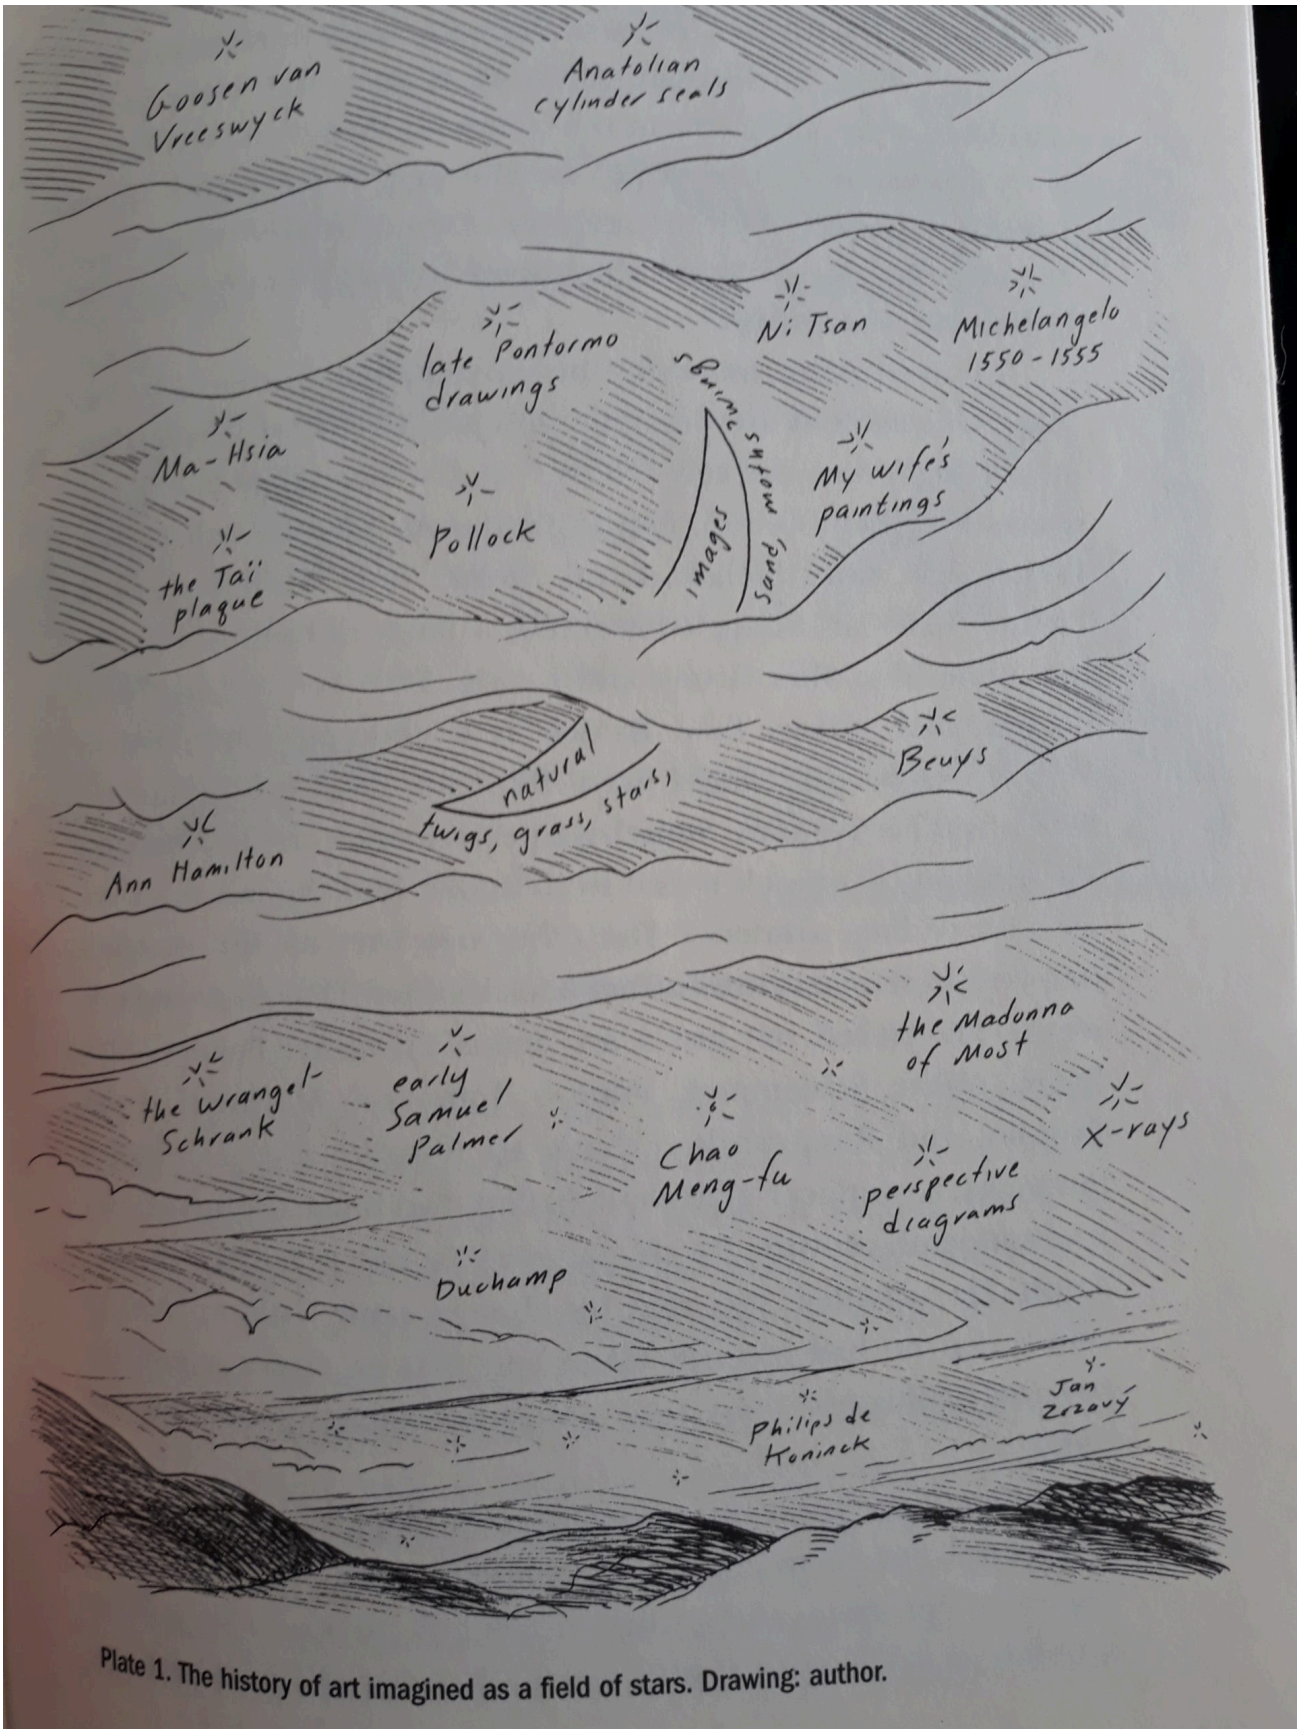 Goosen van
Vreeswyck
Anatolian
cylinder seals
late Pontormo
drawings
Ni Tsan
Michelangelo
1550-1555
Ma-Hsia
Pollock
My wife's
paintings
the Taï
plaque
images
sand, moths' wings
natural
twigs, grass, stars,
Beuys
Ann Hamilton
the Madonna
of Most
the Wrangel-
Schrank
early
Samuel
Palmer
X-rays
Chao
Meng-fu
perspective
diagrams
Duchamp
Philips de
Koninck
Jan
Zrzavý
Plate 1. The history of art imagined as a field of stars. Drawing: author.